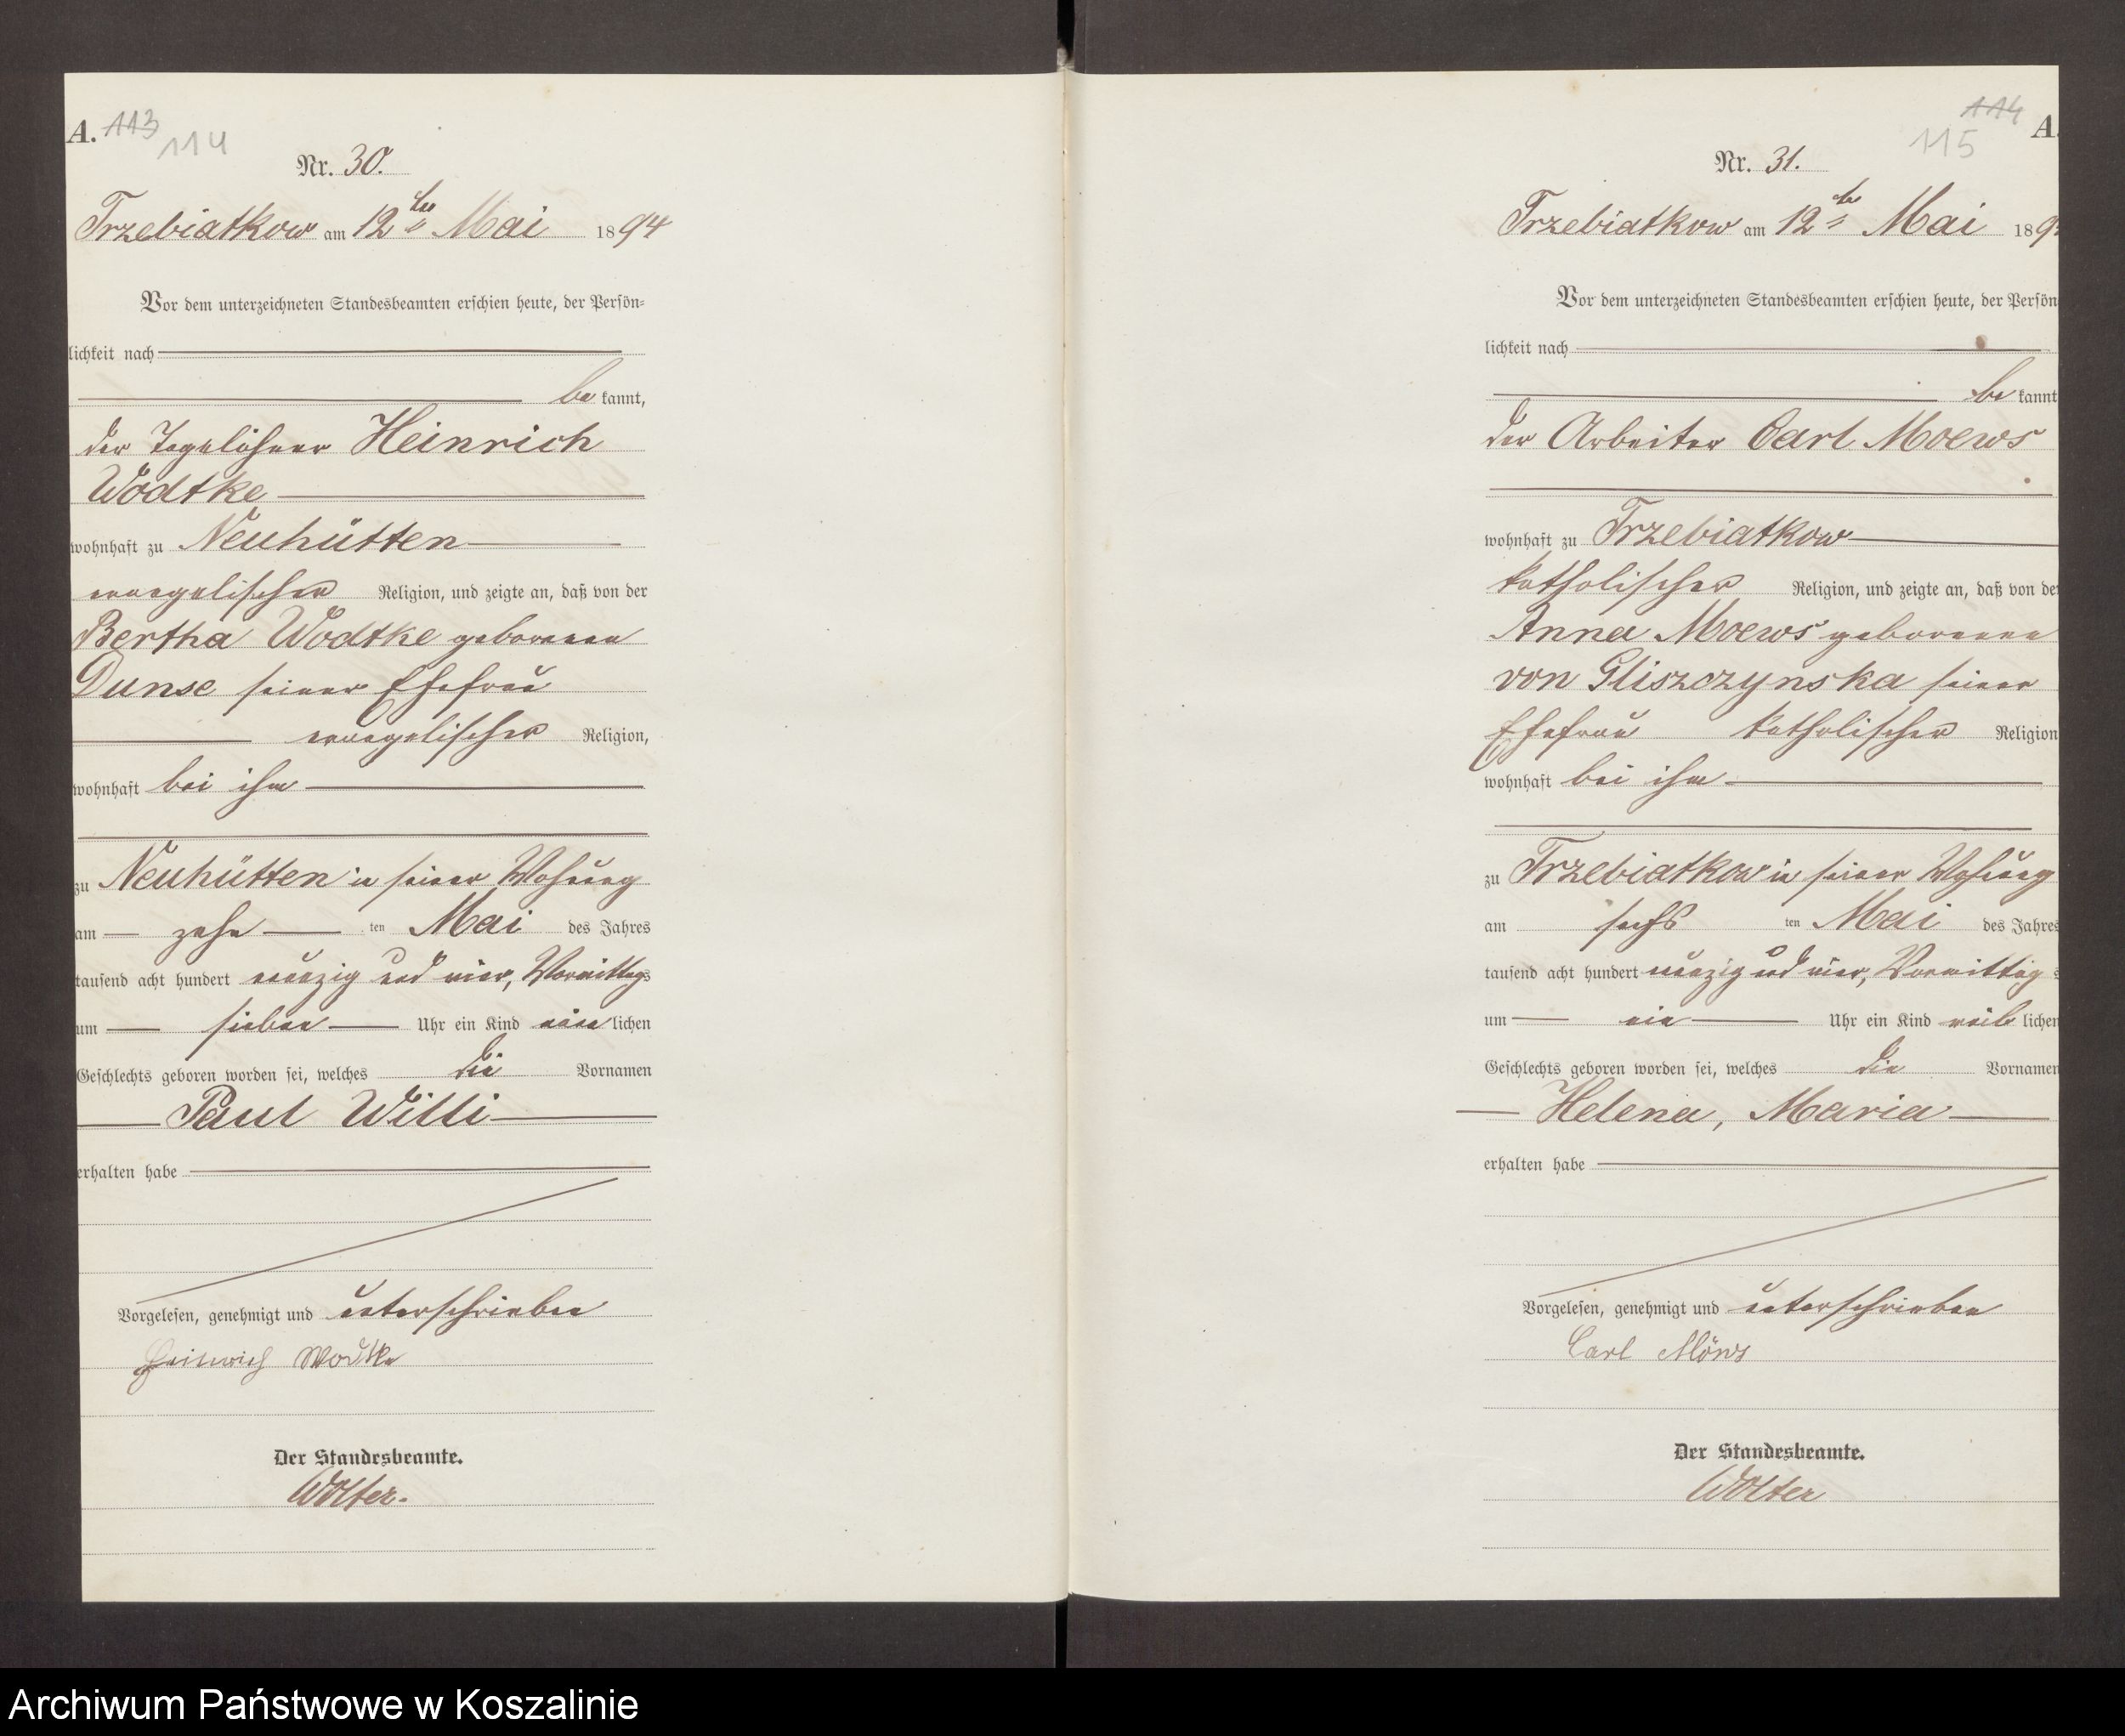 A. 113
114
Nr. 30.
Trzebiatkow am 12ten Mai 1894
Vor dem unterzeichneten Standesbeamten erschien heute, der Persön-
lichkeit nach
be kannt,
der Tagelöhner Heinrich
Wodtke
wohnhaft zu Neuhütten
evangelischer Religion, und zeigte an, daß von der
Bertha Wodtke geborenen
Dunse seiner Ehefrau
evangelischer Religion,
wohnhaft bei ihm
zu Neuhütten in seiner Wohnung
am zehn ten Mai des Jahres
tausend acht hundert neunzig und vier, Vormittags
um sieben Uhr ein Kind männ lichen
Geschlechts geboren worden sei, welches die Vornamen
Paul Willi
erhalten habe
Vorgelesen, genehmigt und unterschrieben
Heinrich Wodtke
Der Standesbeamte.
Wolter.
114 A.
115
Nr. 31.
Trzebiatkow am 12te Mai 189
Vor dem unterzeichneten Standesbeamten erschien heute, der Persön
lichkeit nach
be kannt
der Arbeiter Carl Moews
wohnhaft zu Trzebiatkow
katholischer Religion, und zeigte an, daß von der
Anna Moews geborenen
von Gliszczynska seiner
Ehefrau katholischer Religion
wohnhaft bei ihm
zu Trzebiatkow in seiner Wohnung
am sechs ten Mai des Jahres
tausend acht hundert neunzig und vier, Vormittag s
um ein Uhr ein Kind weib lichen
Geschlechts geboren worden sei, welches die Vornamen
Helena, Maria
erhalten habe
Vorgelesen, genehmigt und unterschrieben
Carl Möws
Der Standesbeamte.
Wolter
Archiwum Państwowe w Koszalinie